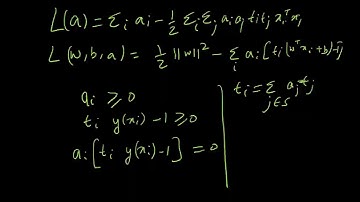 L(a) = Σᵢ aᵢ - 1/2 Σᵢ Σⱼ aᵢ aⱼ tᵢ tⱼ xᵢᵀ xⱼ
L(w, b, a) = 1/2 ||w||² - Σᵢ aᵢ [tᵢ (wᵀxᵢ + b) - 1]
aᵢ ⩾ 0
tᵢ y(xᵢ) - 1 ⩾ 0
aᵢ [tᵢ y(xᵢ) - 1] = 0
tᵢ = Σ_{j∈S} aⱼ tⱼ